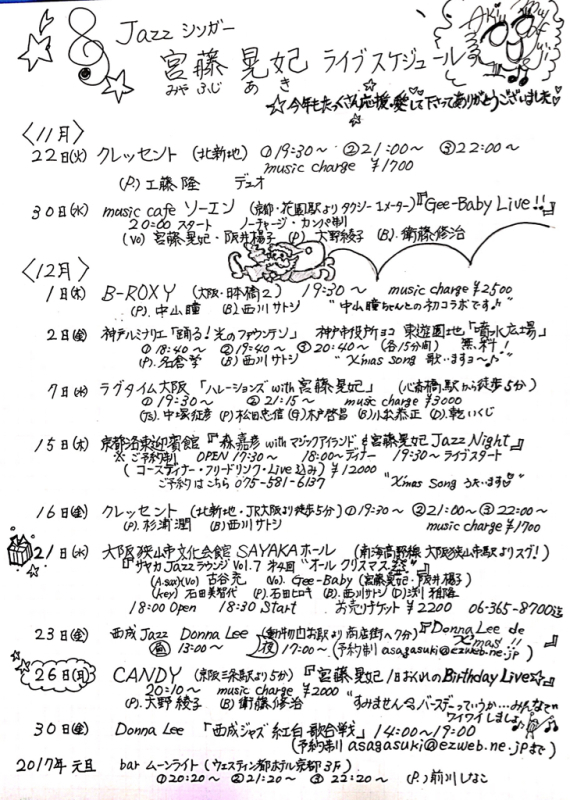 Jazz シンガー
宮藤 晃妃 ライブスケジュール
みや ふじ あ き
☆今年もたくさん応援・愛して下さってありがとうございました♡
〈11月〉
22日(火) クレッセント (北新地) ①19:30〜 ②21:00〜 ③22:00〜
music charge ¥1700
(P.) 工藤 隆 デュオ
30日(水) music cafe ソーエン (京都・花園駅よりタクシー1メーター)『Gee-Baby Live!!』
20:00 スタート ノーチャージ・カンパ制
(Vo) 宮藤晃妃・阪井楊子 (P) 大野綾子 (B.) 衛藤修治
〈12月〉
1日(木) B-ROXY (大阪・日本橋2) 19:30〜 music charge ¥2500
(P.) 中山瞳 (B.) 西川サトシ "中山瞳ちゃんとの初コラボです♪"
2日(金) 神戸ルミナリエ「踊る!光のファウンテン」 神戸市役所ヨコ 東遊園地「噴水広場」
①18:40〜 ②19:40〜 ③20:40〜 (各15分間) 無料!
(P.) 名倉学 (B) 西川サトシ "Xmas song 歌いますョ〜♪"
7日(水) ラグタイム大阪 「ハレーションズ with 宮藤晃妃」 (心斎橋駅から徒歩5分)
①19:30〜 ②21:15〜 music charge ¥3000
(Ts.) 中塚征彦 (P) 松田忠信 (G) 木戸啓昌 (B) 小松恭正 (D.) 乾いくじ
15日(木) 京都洛東迎賓館『森嘉彦 with マジックアイランド & 宮藤晃妃 Jazz Night』
※ご予約制 OPEN 17:30〜 18:00〜ディナー 19:30〜ライブスタート
(コースディナー・フリードリンク・Live込み) ¥12000
ご予約はこちら 075-581-6137 "Xmas Song うたいます♡"
16日(金) クレッセント (北新地・JR大阪より徒歩5分) ①19:30〜 ②21:00〜 ③22:00〜
(P). 杉浦潤 (B) 西川サトシ music charge ¥1700
21日(水) 大阪狭山市文化会館 SAYAKAホール (南海高野線 大阪狭山市駅よりスグ!)
『サヤカ Jazz ラウンジ Vol.7 "オール クリスマス
(A.sax)(Vo) 古谷充 (Vo). Gee-Baby (宮藤晃妃・阪井楊子)
(key) 石田美智代 (P). 石田ヒロキ (B). 西川サトシ (D)
18:00 Open 18:30 Start お売りチケット ¥2200 06-365-8700迄
23日(金) 西成Jazz Donna Lee (動物園前駅より商店街へ7分)『Donna Lee de X'mas!!』
昼 13:00〜 夜 17:00〜 (予約制 asagasuki@ezweb.ne.jp)
26日(月) CANDY (京阪三条駅より5分)『宮藤晃妃1日おくれのBirthday Live☆』
20:10〜 music charge ¥2000 "すみません、バースデーっていうか…みんなで
(P). 大野綾子 (B) 衛藤修治 ワイワイしましょ
30日(金) Donna Lee 「西成ジャズ紅白歌合戦」 14:00〜19:00
(予約制 asagasuki@ezweb.ne.jpまで)
2017年 元旦 bar ムーンライト (ウェスティン都ホテル京都3F)
①20:20〜 ②21:20〜 ③22:20〜 (P.) 前川しなこ